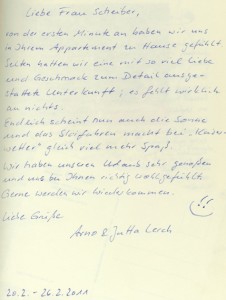 Liebe Frau Schreiber,
von der ersten Minute an haben wir uns
in Ihrem Appartement zu Hause gefühlt.
Selten hatten wir eine mit so viel Liebe
und Geschmack zum Detail ausge-
stattete Unterkunft; es fehlt wirklich
an nichts.
Endlich scheint nun auch die Sonne
und das Skifahren macht bei "Kaiser-
wetter" gleich viel mehr Spaß.
Wir haben unseren Urlaub sehr genossen
und uns bei Ihnen richtig wohlgefühlt.
Gerne werden wir wiederkommen.
Liebe Grüße
Arno & Jutta Lerch
20.2. - 26.2.2011